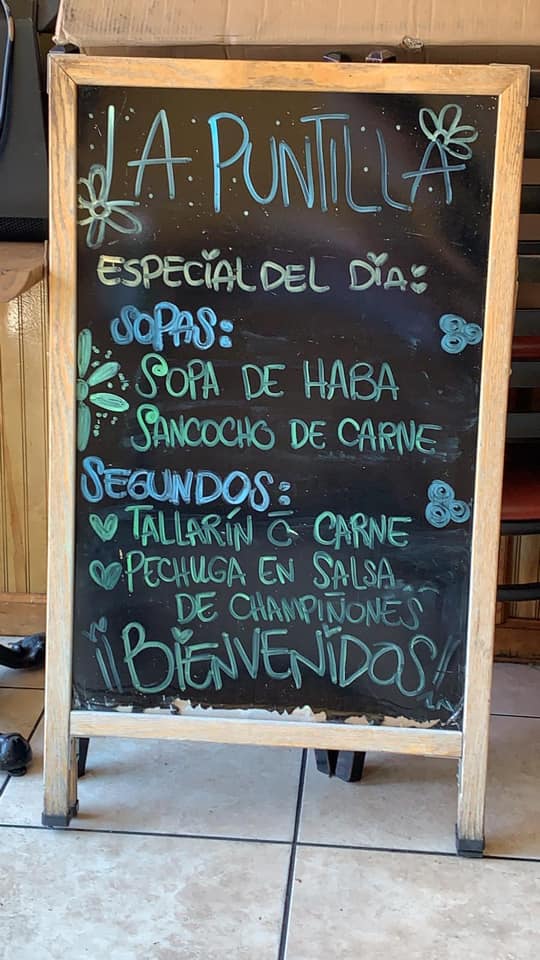 LA PUNTILLA
ESPECIAL DEL DÍA:
SOPAS:
SOPA DE HABA
SANCOCHO DE CARNE
SEGUNDOS:
TALLARÍN C̄ CARNE
PECHUGA EN SALSA
DE CHAMPIÑONES
¡¡BIENVENIDOS!!